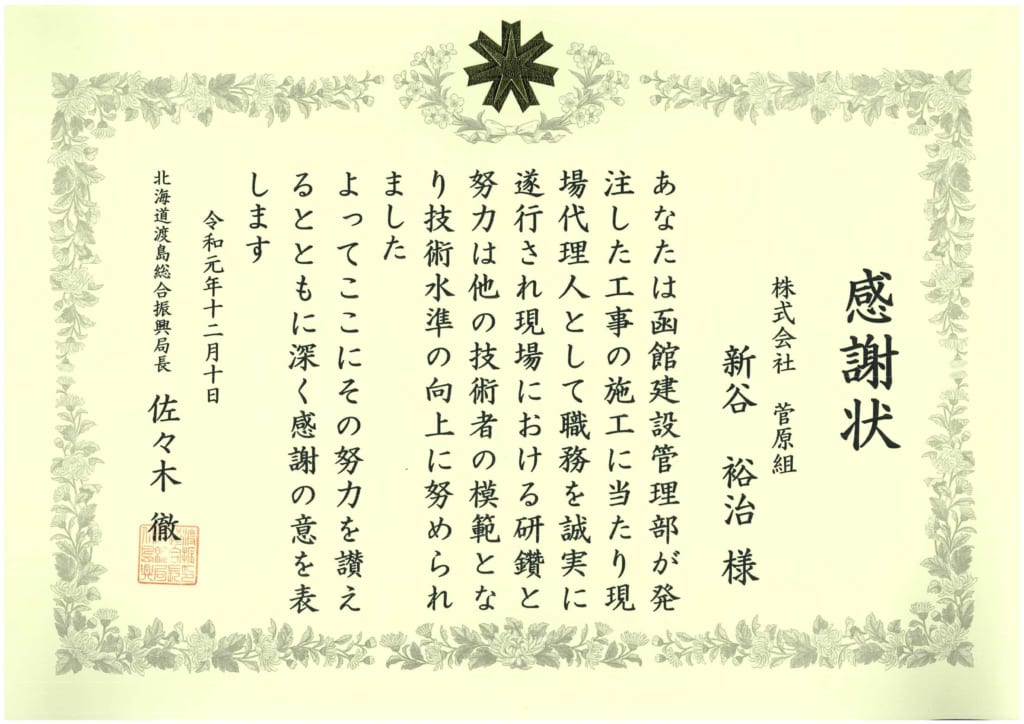 感謝状
株式会社 菅原組
新谷 裕治 様
あなたは函館建設管理部が発
注した工事の施工に当たり現
場代理人として職務を誠実に
遂行され現場における研鑽と
努力は他の技術者の模範とな
り技術水準の向上に努められ
ました
よってここにその努力を讃え
るとともに深く感謝の意を表
します
令和元年十二月十日
北海道渡島総合振興局長 佐々木 徹